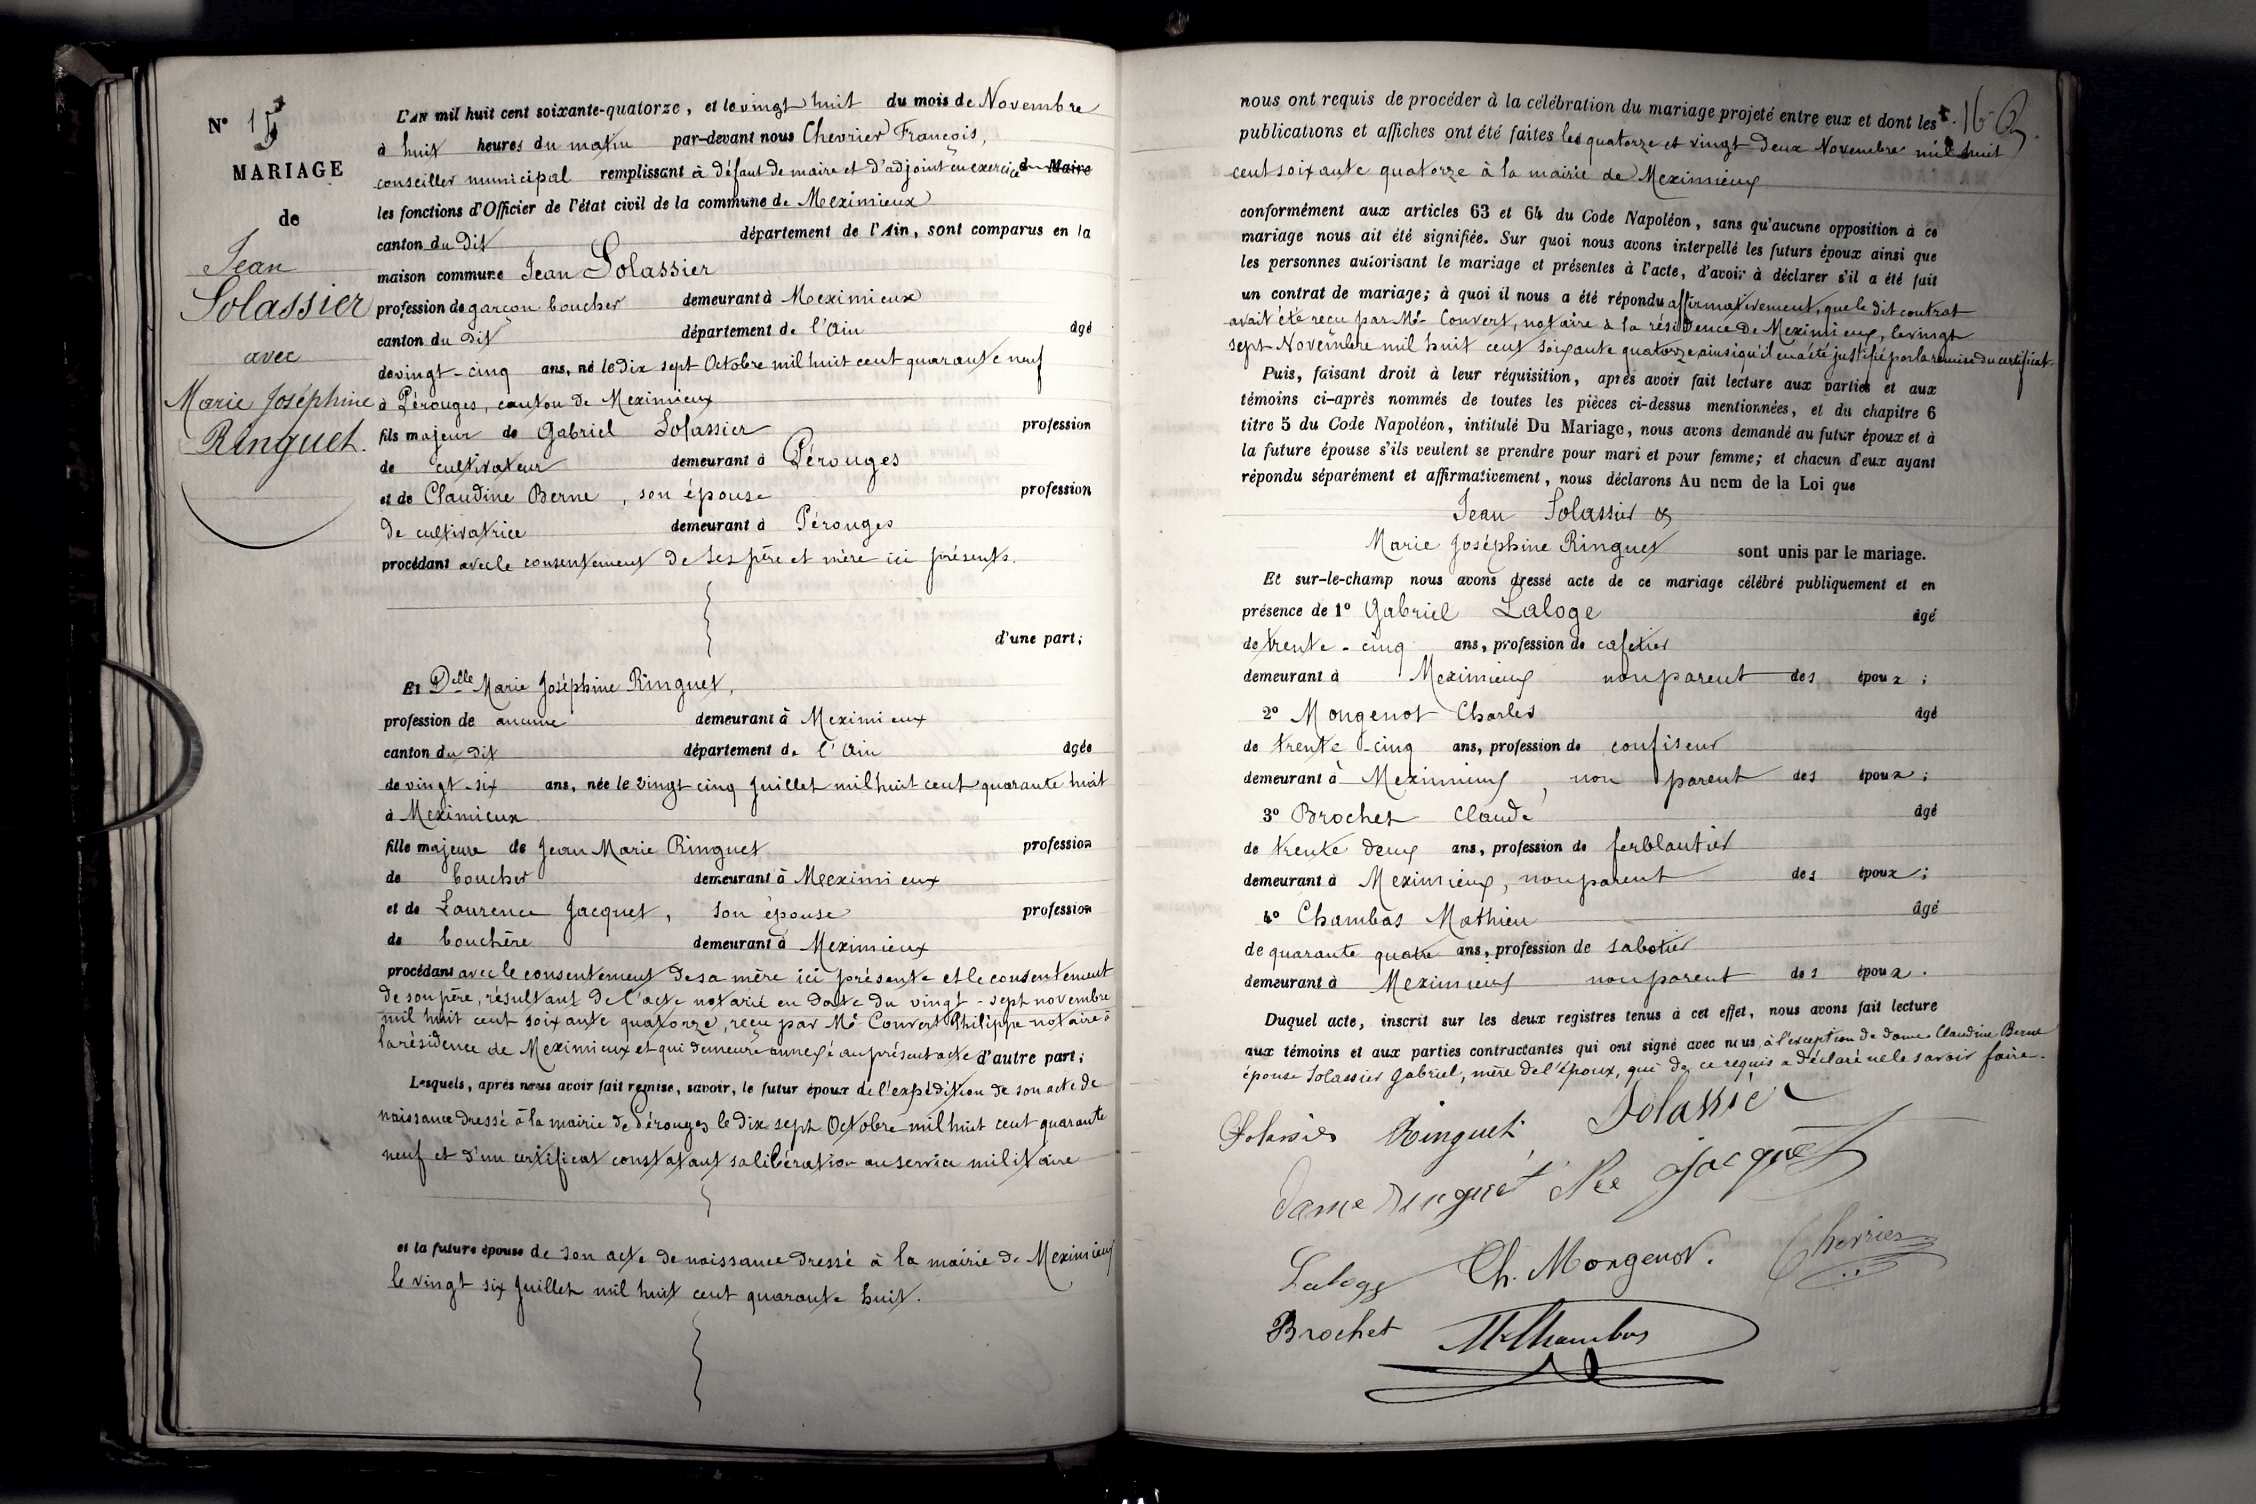 N° 15
MARIAGE
de
Jean
Solassier
avec
Marie Joséphine
Ringuet.
L'AN mil huit cent soixante-quatorze, et le vingt huit du mois de Novembre
à huit heures du matin par-devant nous Chevrier François,
conseiller municipal remplissant à défaut de maire et d'adjoint en exercice du Maire
les fonctions d'Officier de l'état civil de la commune de Meximieux
canton du dit département de l'Ain, sont comparus en la
maison commune Jean Solassier
profession de garçon boucher demeurant à Meximieux
canton du dit département de l'Ain âgé
de vingt-cinq ans, né le dix sept Octobre mil huit cent quarante neuf
à Pérouges, canton de Meximieux
fils majeur de Gabriel Solassier profession
de cultivateur demeurant à Pérouges
et de Claudine Berne, son épouse profession
de cultivatrice demeurant à Pérouges
procédant avec le consentement de ses père et mère ici présents.
d'une part;
Et Delle Marie Joséphine Ringuet,
profession de aucune demeurant à Meximieux
canton du dit département de l'Ain âgée
de vingt-six ans, née le vingt cinq Juillet mil huit cent quarante huit
à Meximieux
fille majeure de Jean Marie Ringuet profession
de boucher demeurant à Meximieux
et de Laurence Jacquet, son épouse profession
de bouchère demeurant à Meximieux
procédant avec le consentement de sa mère ici présente et le consentement
de son père, résultant de l'acte notarié en date du vingt-sept novembre
mil huit cent soixante quatorze, reçu par Me Convert Philippe notaire à
la résidence de Meximieux et qui demeure annexé au présent acte d'autre part;
Lesquels, après nous avoir fait remise, savoir, le futur époux de l'expédition de son acte de
naissance dressé à la mairie de Pérouges le dix sept Octobre mil huit cent quarante
neuf et d'un certificat constatant sa libération au service militaire
et la future épouse de son acte de naissance dressé à la mairie de Meximieux
le vingt six Juillet mil huit cent quarante huit.
nous ont requis de procéder à la célébration du mariage projeté entre eux et dont les
publications et affiches ont été faites les quatorze et vingt deux Novembre mil huit
cent soixante quatorze à la mairie de Meximieux
conformément aux articles 63 et 64 du Code Napoléon, sans qu'aucune opposition à ce
mariage nous ait été signifiée. Sur quoi nous avons interpellé les futurs époux ainsi que
les personnes autorisant le mariage et présentes à l'acte, d'avoir à déclarer s'il a été fait
un contrat de mariage; à quoi il nous a été répondu affirmativement, que le dit contrat
avait été reçu par Me Convert, notaire à la résidence de Meximieux, le vingt
sept Novembre mil huit cent soixante quatorze ainsi qu'il en a été justifié par la remise du certificat.
Puis, faisant droit à leur réquisition, après avoir fait lecture aux parties et aux
témoins ci-après nommés de toutes les pièces ci-dessus mentionnées, et du chapitre 6
titre 5 du Code Napoléon, intitulé Du Mariage, nous avons demandé au futur époux et à
la future épouse s'ils veulent se prendre pour mari et pour femme; et chacun d'eux ayant
répondu séparément et affirmativement, nous déclarons Au nom de la Loi que
Jean Solassier et
Marie Joséphine Ringuet sont unis par le mariage.
Et sur-le-champ nous avons dressé acte de ce mariage célébré publiquement et en
présence de 1° Gabriel Laloge âgé
de trente-cinq ans, profession de cafetier
demeurant à Meximieux non parent des époux;
2° Mongenot Charles âgé
de trente-cinq ans, profession de confiseur
demeurant à Meximieux, non parent des époux;
3° Brochet Claude âgé
de trente deux ans, profession de ferblantier
demeurant à Meximieux, non parent des époux;
4° Chambas Mathieu âgé
de quarante quatre ans, profession de sabotier
demeurant à Meximieux non parent des époux.
Duquel acte, inscrit sur les deux registres tenus à cet effet, nous avons fait lecture
aux témoins et aux parties contractantes qui ont signé avec nous, à l'exception de dame Claudine Berne
épouse Solassier Gabriel, mère de l'époux, qui de ce requis a déclaré ne le savoir faire.
Solassier Ringuet Solassier
Dame Ringuet Née Jacquet
Laloge Ch. Mongenot. Chevrier
Brochet M Chambas